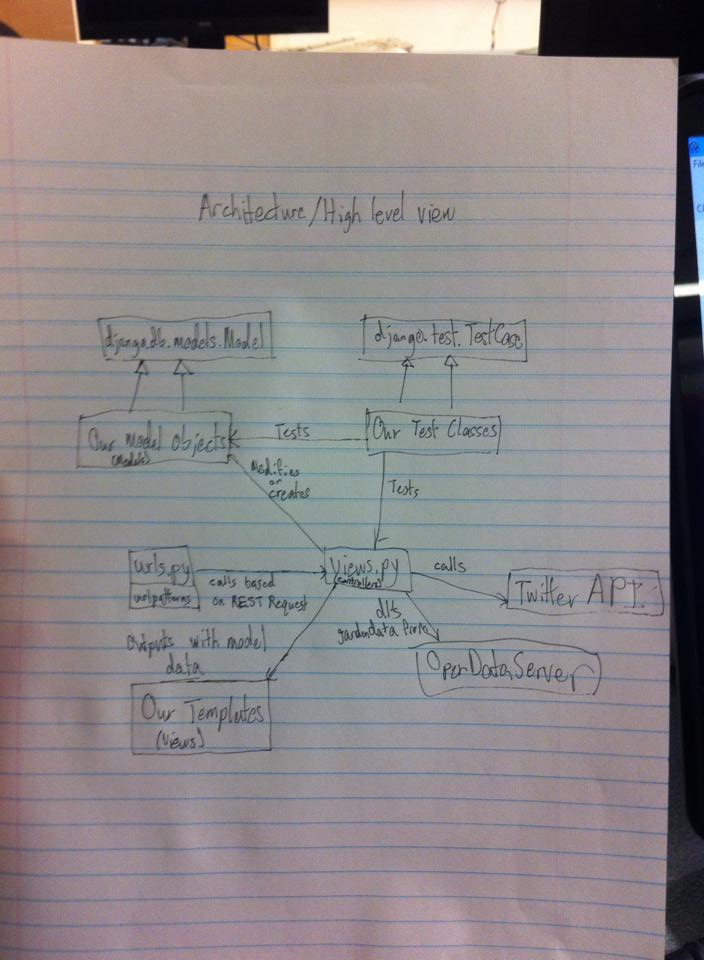 Architecture/High level view
django.db.models.Model
django.test.TestCase
Our model objects
(models)
Tests
Our Test Classes
Modifies
or
creates
Tests
urls.py
urlpatterns
calls based
on REST Request
views.py
(controllers)
calls
Twitter API
dls
gardendata from
OpenDataServer
Outputs with model
data
Our Templates
(views)